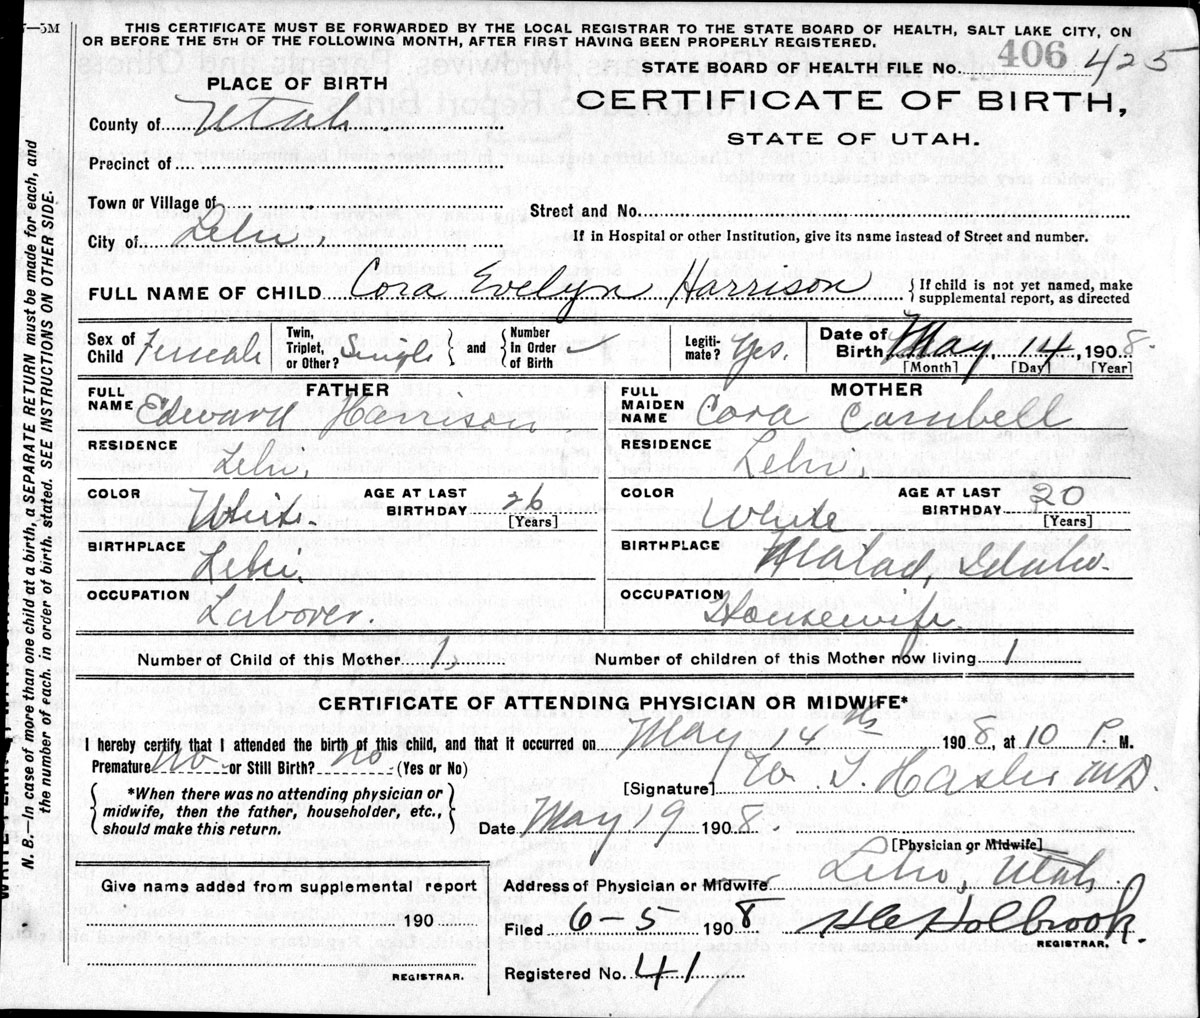 5—5M
THIS CERTIFICATE MUST BE FORWARDED BY THE LOCAL REGISTRAR TO THE STATE BOARD OF HEALTH, SALT LAKE CITY, ON
OR BEFORE THE 5TH OF THE FOLLOWING MONTH, AFTER FIRST HAVING BEEN PROPERLY REGISTERED.
STATE BOARD OF HEALTH FILE No. 406 425
PLACE OF BIRTH
CERTIFICATE OF BIRTH,
STATE OF UTAH.
County of Utah.
Precinct of
Town or Village of
Street and No.
City of Lehi.
If in Hospital or other Institution, give its name instead of Street and number.
FULL NAME OF CHILD Cora Evelyn Harrison { If child is not yet named, make supplemental report, as directed
Sex of Child Female Twin, Triplet, or Other? Single } and { Number In Order of Birth ✓ Legiti- mate? Yes. Date of Birth May 14, 1908.
[Month] [Day] [Year]
FATHER
FULL NAME Edward Harrison.
RESIDENCE Lehi.
COLOR White. AGE AT LAST BIRTHDAY 26 [Years]
BIRTHPLACE Lehi.
OCCUPATION Laborer.
MOTHER
FULL MAIDEN NAME Cora Cambell
RESIDENCE Lehi.
COLOR White AGE AT LAST BIRTHDAY 20 [Years]
BIRTHPLACE Malad, Idaho.
OCCUPATION Housewife.
Number of Child of this Mother 1, Number of children of this Mother now living 1
CERTIFICATE OF ATTENDING PHYSICIAN OR MIDWIFE*
I hereby certify that I attended the birth of this child, and that it occurred on May 14th 1908, at 10 P. M.
Premature No or Still Birth? No. (Yes or No)
[Signature] W. T. Hasler M.D.
{ *When there was no attending physician or
midwife, then the father, householder, etc.,
should make this return. }
Date May 19 1908.
[Physician or Midwife]
Address of Physician or Midwife Lehi, Utah
Give name added from supplemental report
190
REGISTRAR.
Filed 6-5 1908 Holbrook.
REGISTRAR.
Registered No. 41
N. B.—In case of more than one child at a birth, a SEPARATE RETURN must be made for each, and
the number of each, in order of birth, stated. SEE INSTRUCTIONS ON OTHER SIDE.